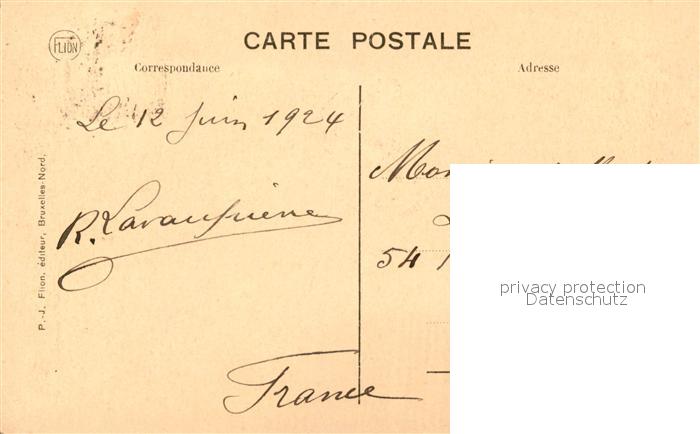 FLION
CARTE POSTALE
Correspondance
Adresse
Le 12 Juin 1924
R.
54
France
P.-J. Flion, éditeur, Bruxelles-Nord.
privacy protection
Datenschutz